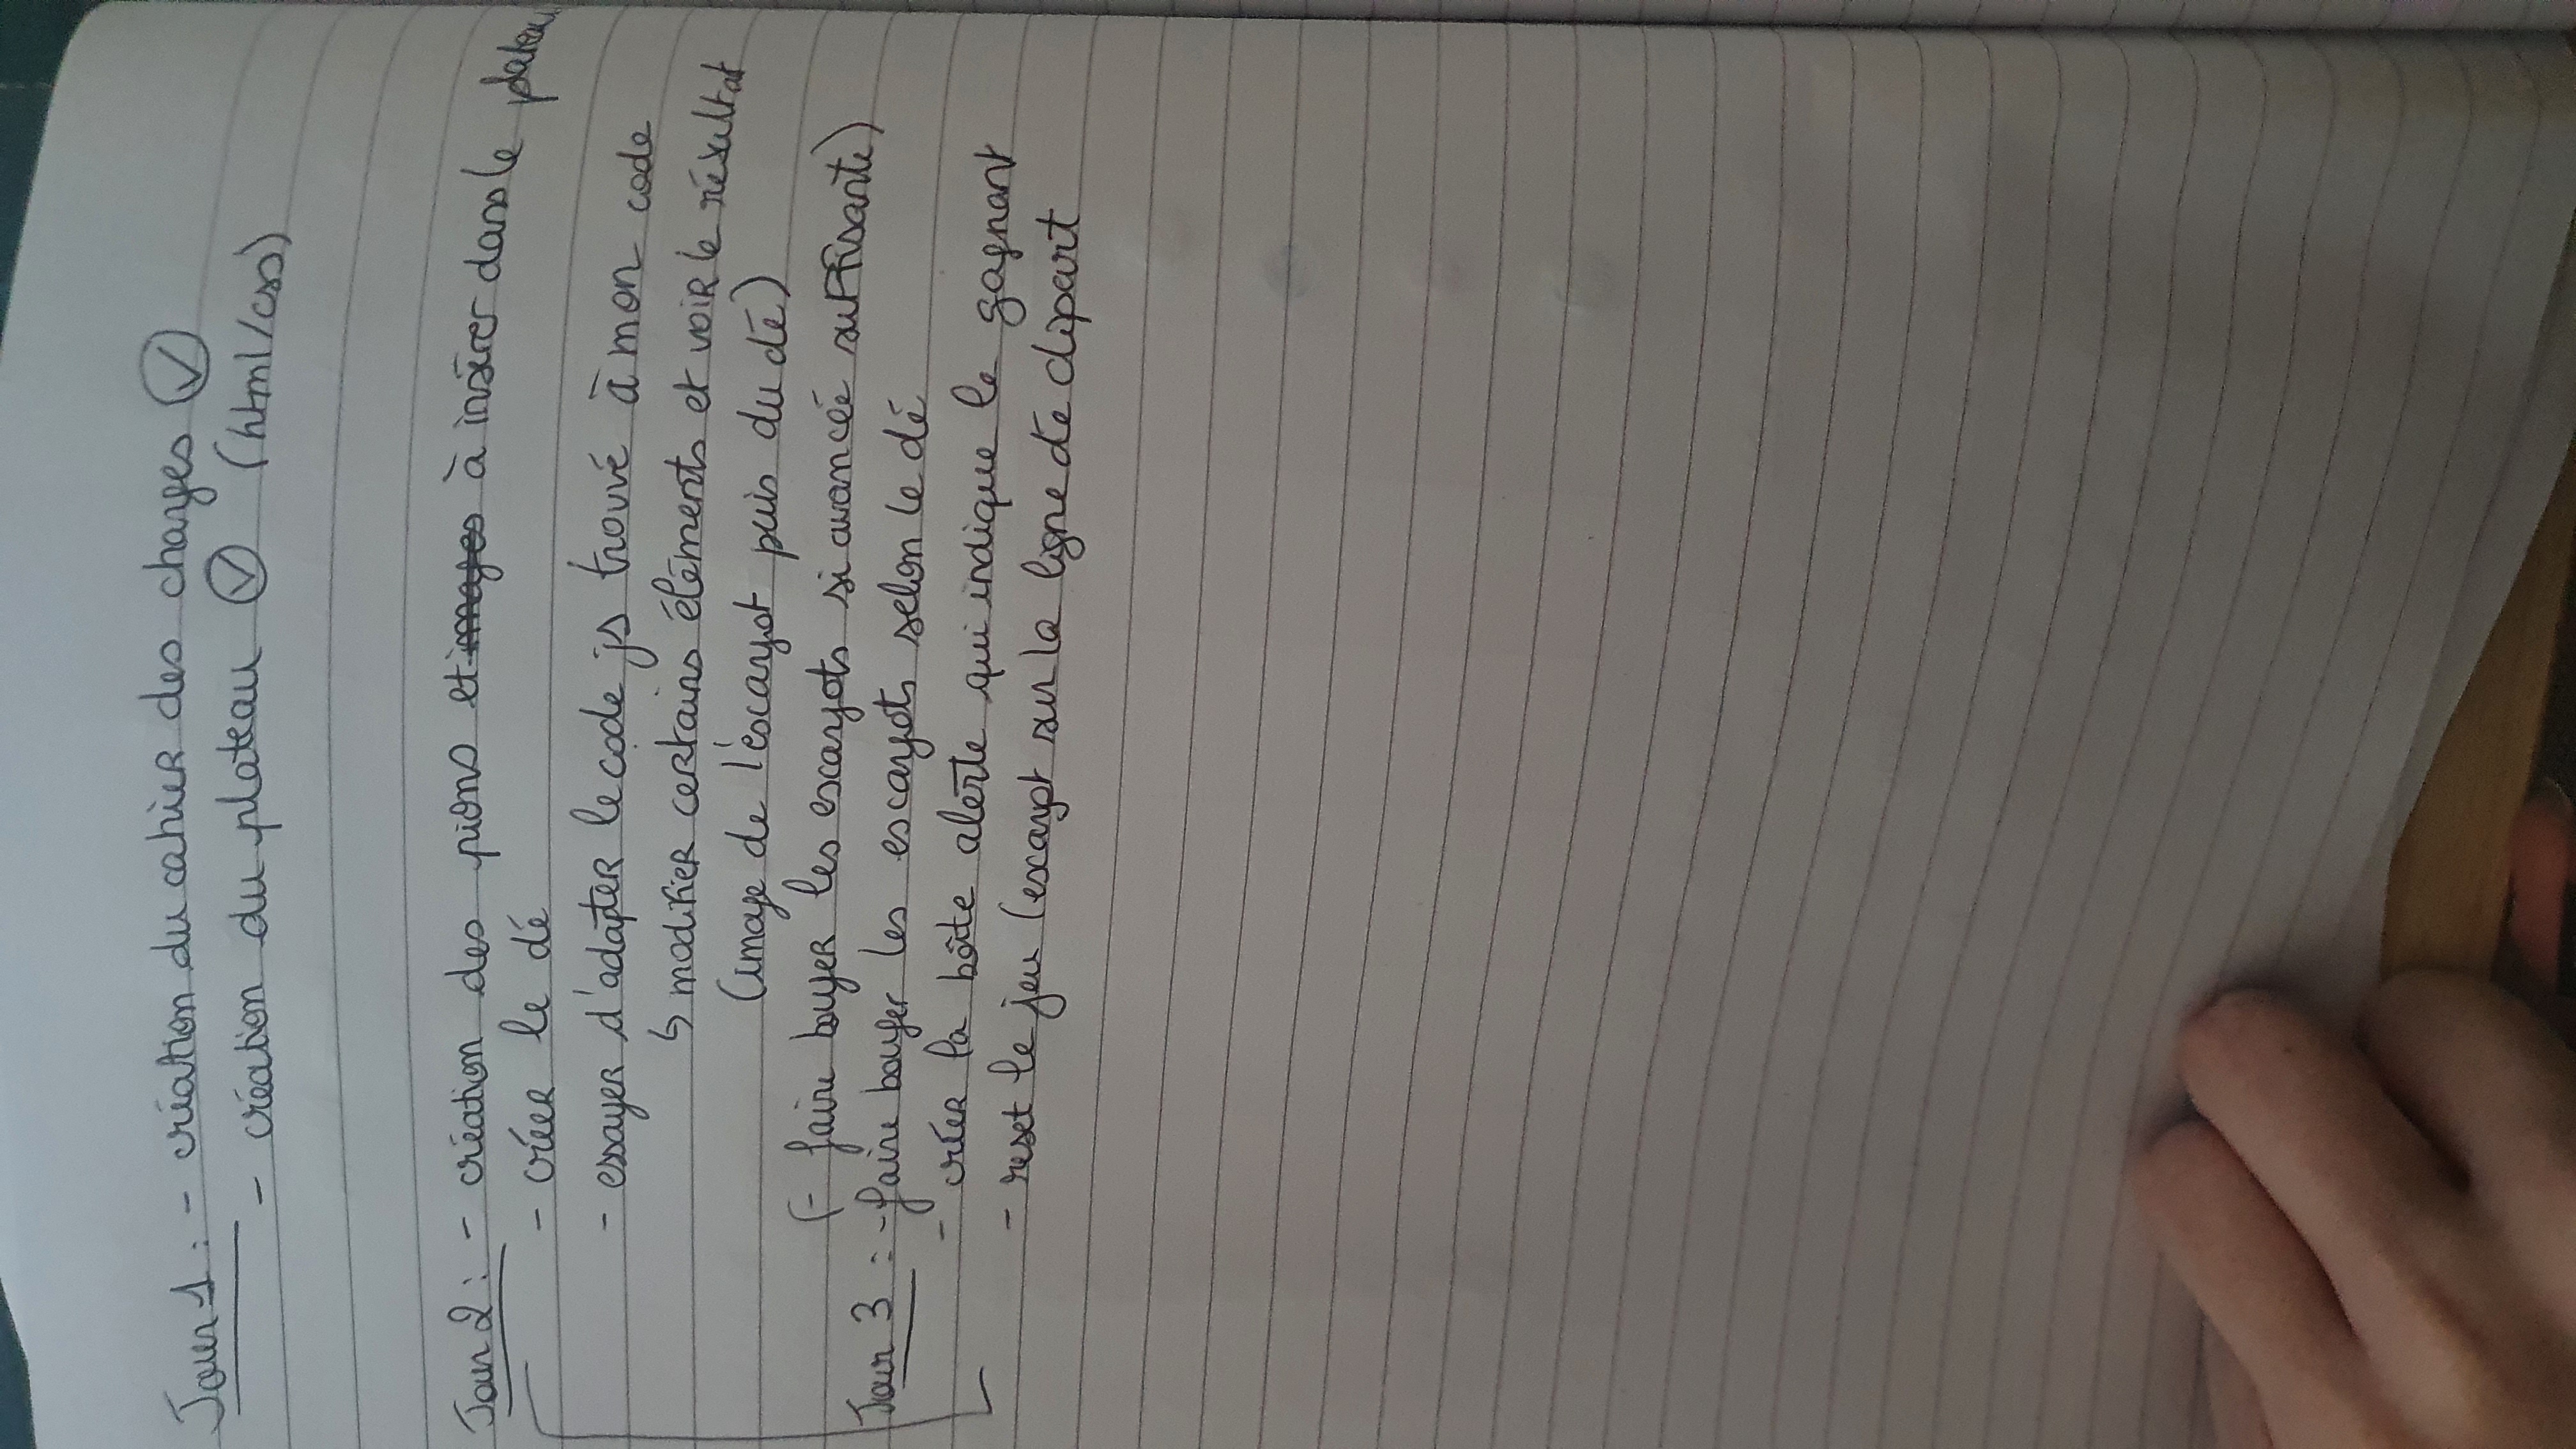 Jour 1 : - création du cahier des charges
- création du plateau (html/css)
Jour 2 : - création des pions et images à insérer dans le plateau
- créer le dé
- essayer d'adapter le code js trouvé à mon code
↳ modifier certains éléments et voir le résultat
(image de l'escargot puis du dé)
(- faire bouger les escargots si avancée suffisante)
Jour 3 : - faire bouger les escargots selon le dé
- créer la boîte alerte qui indique le gagnant
- reset le jeu (escargot sur la ligne de départ